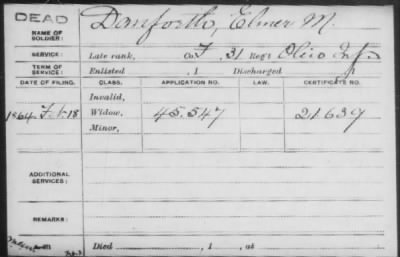 DEAD
NAME OF SOLDIER: Danforth, Elmer M.
SERVICE: Late rank, Co F, 31 Reg't Ohio Inf.
TERM OF SERVICE: Enlisted , 1 Discharged , 1
DATE OF FILING. CLASS. APPLICATION NO. LAW. CERTIFICATE NO.
Invalid,
1864 Feb. 18 Widow, 45.547 21.639
Minor,
ADDITIONAL SERVICES:
REMARKS:
Died , 1 , at